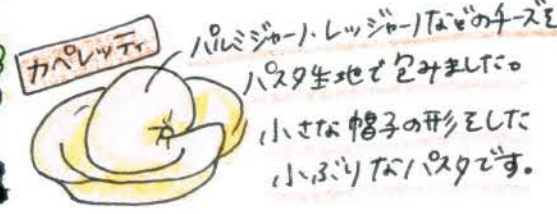 カペレッティ
パルミジャーノ・レッジャーノなどのチーズを
パスタ生地で包みました。
小さな帽子の形をした
小ぶりなパスタです。